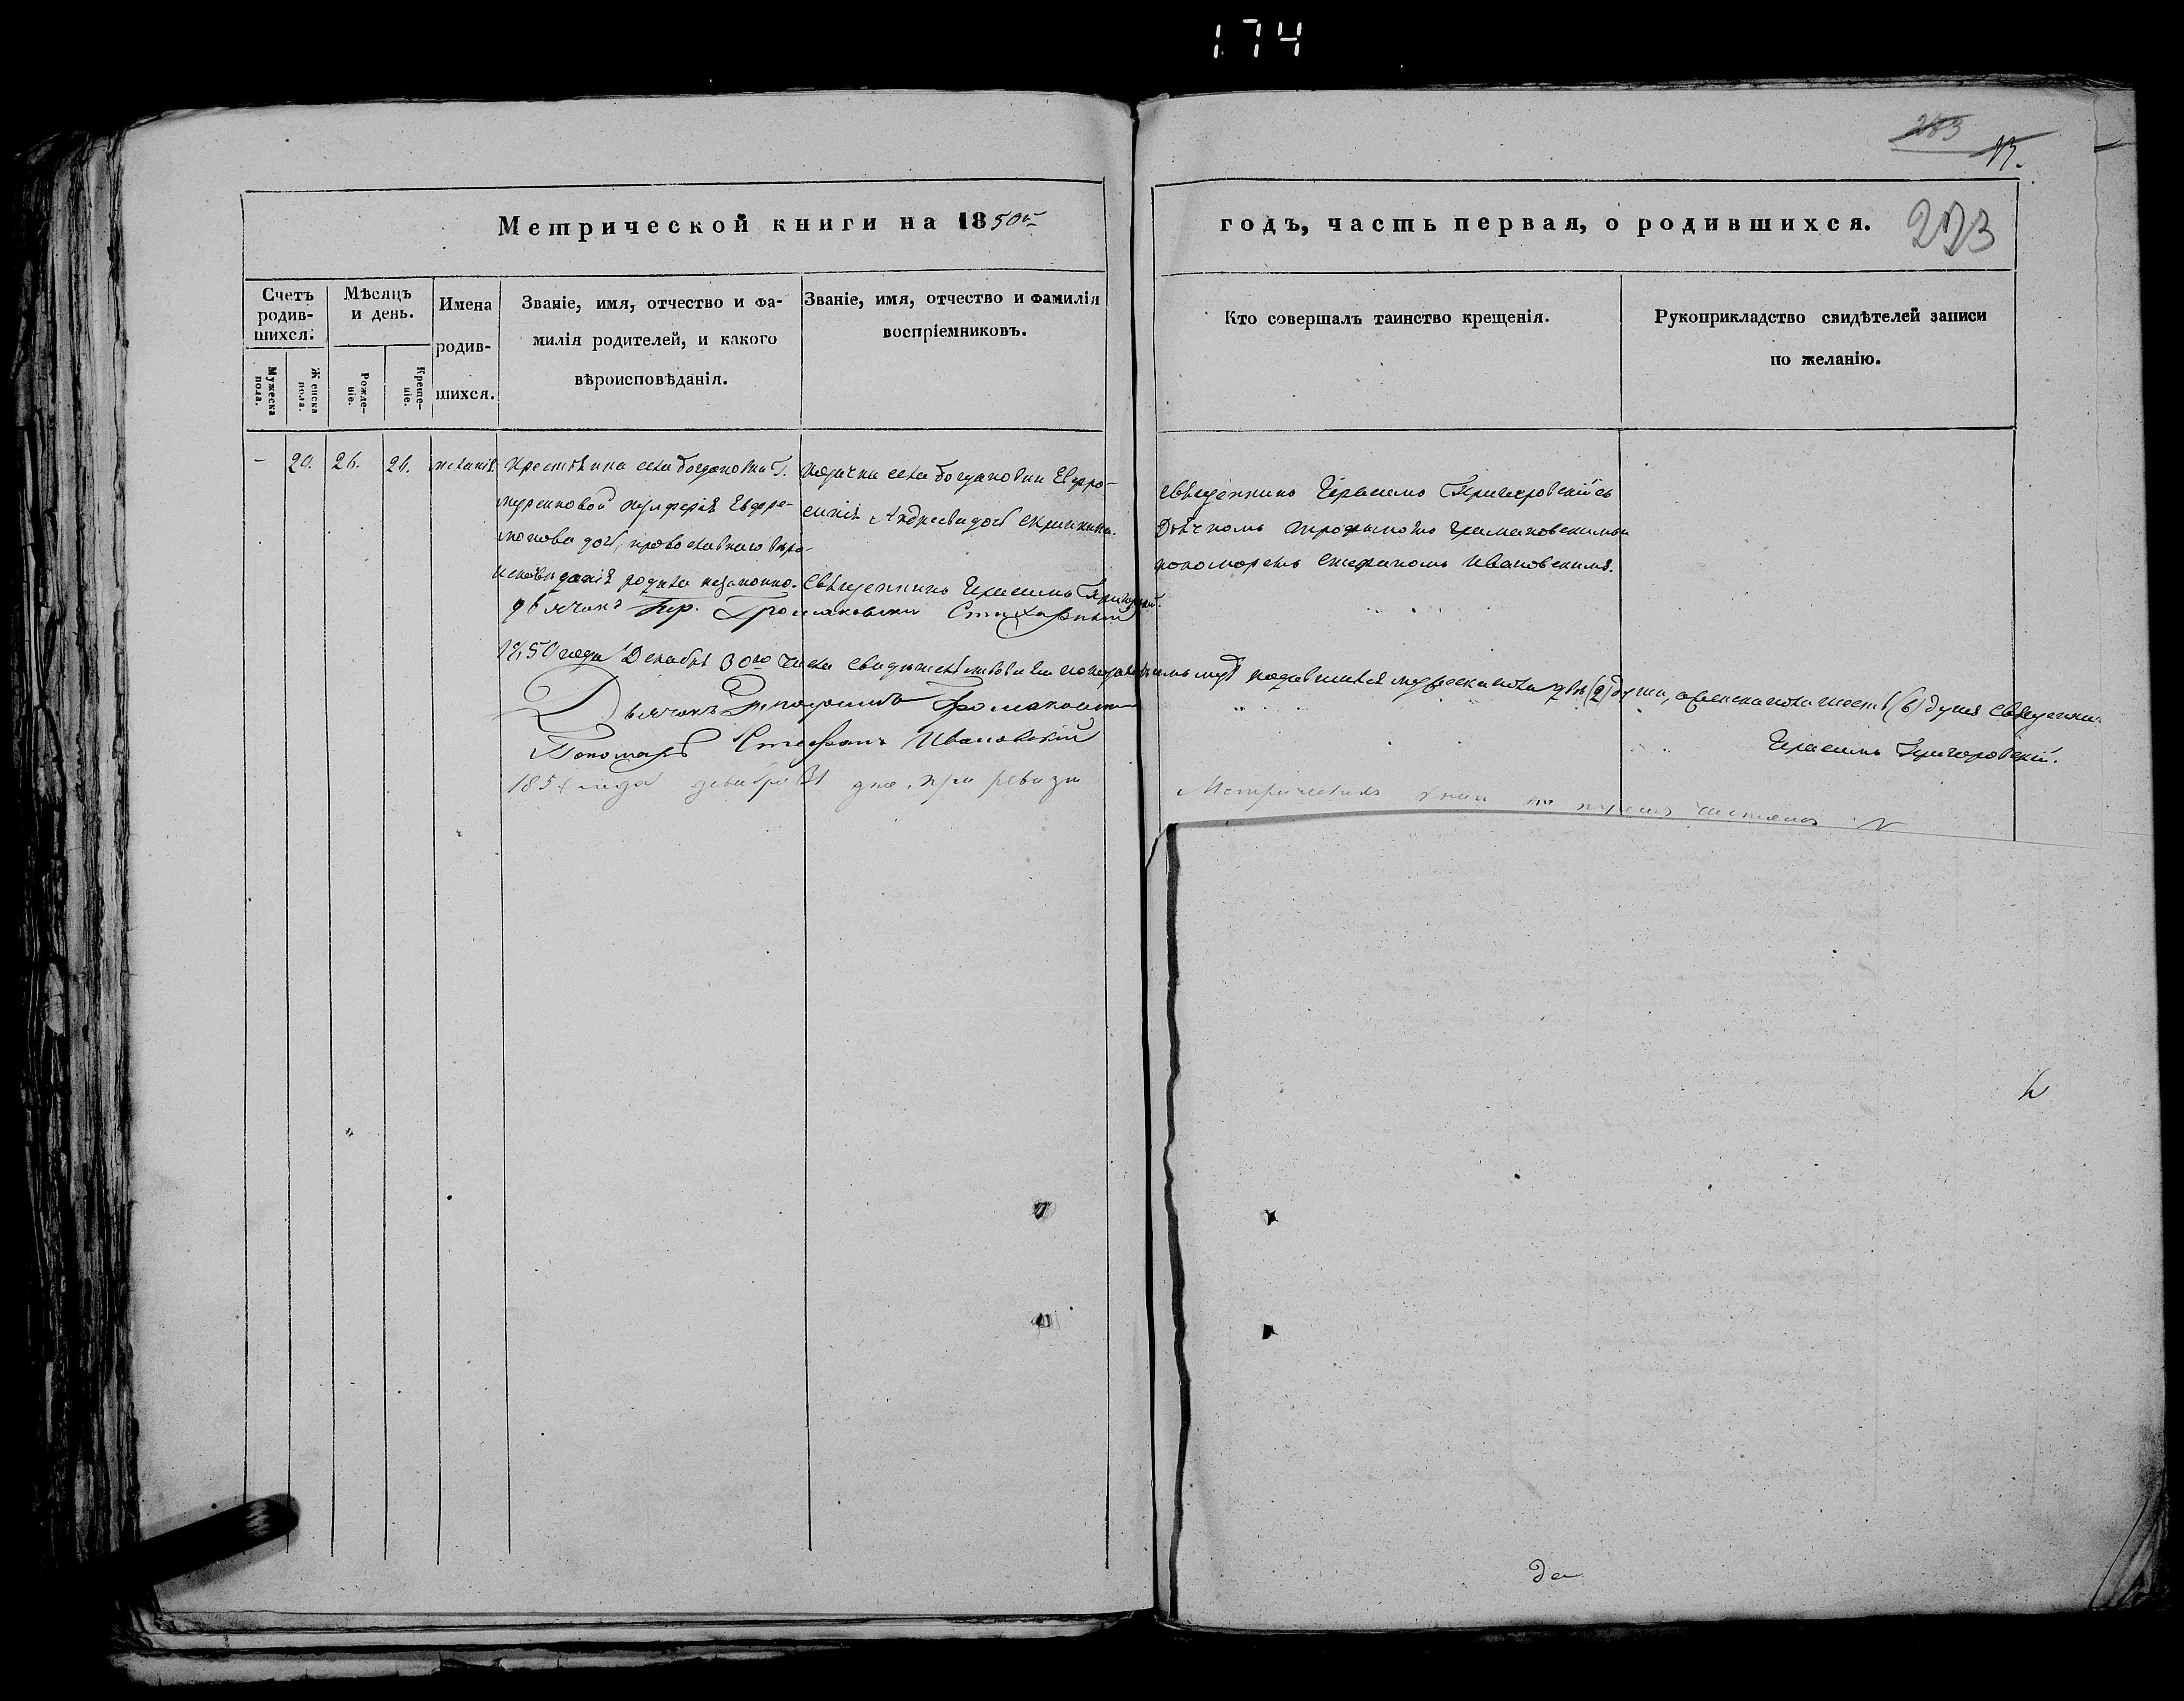 174
283
273
Метрической книги на 1850й
годъ, часть первая, о родившихся.
Счетъ родив-шихся.
Мужеска пола.
Женска пола.
Мѣсяцъ и день.
Рожде-ніе.
Креще-ніе.
Имена
родив-
шихся.
Званіе, имя, отчество и фа-
милія родителей, и какого
вѣроисповѣданія.
Званіе, имя, отчество и фамилія
воспріемниковъ.
Кто совершалъ таинство крещенія.
Рукоприкладство свидѣтелей записи
по желанію.
- 20. 26. 26. меланія
села богдановки Г.
Евфре-
мова доч, православнаго вѣро-
исповеданія родила незаконно.
села богдановки Евфро-
синія Андреева доч
Священникъ Герасимъ Григоровскій съ
Дьячкомъ трофимомъ громаковскимъ и
пономаремъ стефаномъ Ивановскимъ.
Священникъ Герасимъ Григоровскій.
дьячокъ Тр. Громаковскій Стихарный
1850 года Декабря 30го числа свидѣтельствовали мужеска пола двѣ (2) души, а женска пола шесть (6) душъ Священникъ
Герасимъ Григоровскій.
Дьячокъ Трофимъ Громаковскій
Пономарь Стефанъ Ивановскій
185 года декабря 31 дня. при ревизіи
Метрическихъ книг по тремъ частямъ
да